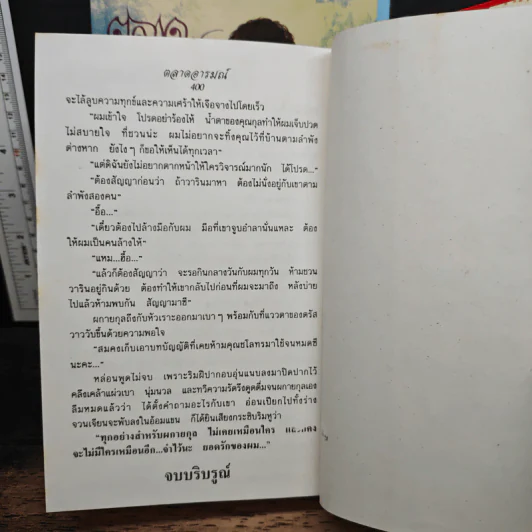 ตลาดอารมณ์
400
จะไล้ลูบความทุกข์และความเศร้าให้เจือจางไปโดยเร็ว
"ผมเข้าใจ โปรดอย่าร้องไห้ น้ำตาของคุณกุลทำให้ผมเจ็บปวด
ไม่สบายใจ ที่ชวนน่ะ ผมไม่อยากจะทิ้งคุณไว้ที่บ้านตามลำพัง
ต่างหาก ยังไงๆ ก็ขอให้เห็นได้ทุกเวลา"
"แต่ดิฉันยังไม่อยากตากหน้าให้ใครวิจารณ์มากนัก ได้โปรด..."
"ต้องสัญญาก่อนว่า ถ้าวารินมาหา ต้องไม่นั่งอยู่กับเขาตาม
ลำพังสองคน"
"อื้อ..."
"เดี๋ยวต้องไปล้างมือกับผม มือที่เขาจูบอำลานั่นแหละ ต้อง
ให้ผมเป็นคนล้างให้"
"แหม...ฮื้อ..."
"แล้วก็ต้องสัญญาว่า จะรอกินกลางวันกับผมทุกวัน ห้ามชวน
วารินอยู่กินด้วย ต้องทำให้เขากลับไปก่อนที่ผมจะมาถึง หลังบ่าย
ไปแล้วห้ามพบกัน สัญญามาซี"
ผกายกุลถึงกับหัวเราะออกมาเบาๆ พร้อมกับที่แววตาของตรัส
วาววับขึ้นด้วยความพอใจ
"สมคงเก็บเอาบทบัญญัติที่เคยห้ามคุณชโลทรมาใช้จนหมดซี
นะคะ..."
หล่อนพูดไม่จบ เพราะริมฝีปากอบอุ่นแนบลงมาปิดปากไว้
คลึงเคล้าแผ่วเบา นุ่มนวล และทวีความรัดรึงดูดดื่มจนผกายกุลเอง
ลืมหมดแล้วว่า ได้ตั้งคำถามอะไรกับเขา อ่อนเปียกไปทั้งร่าง
จวนเจียนจะพับลงในอ้อมแขน ก็ได้ยินเสียงกระซิบริมหูว่า
"ทุกอย่างสำหรับผกายกุล ไม่เคยเหมือนใคร และคง
จะไม่มีใครเหมือนอีก...จำไว้นะ ยอดรักของผม..."
จบบริบูรณ์